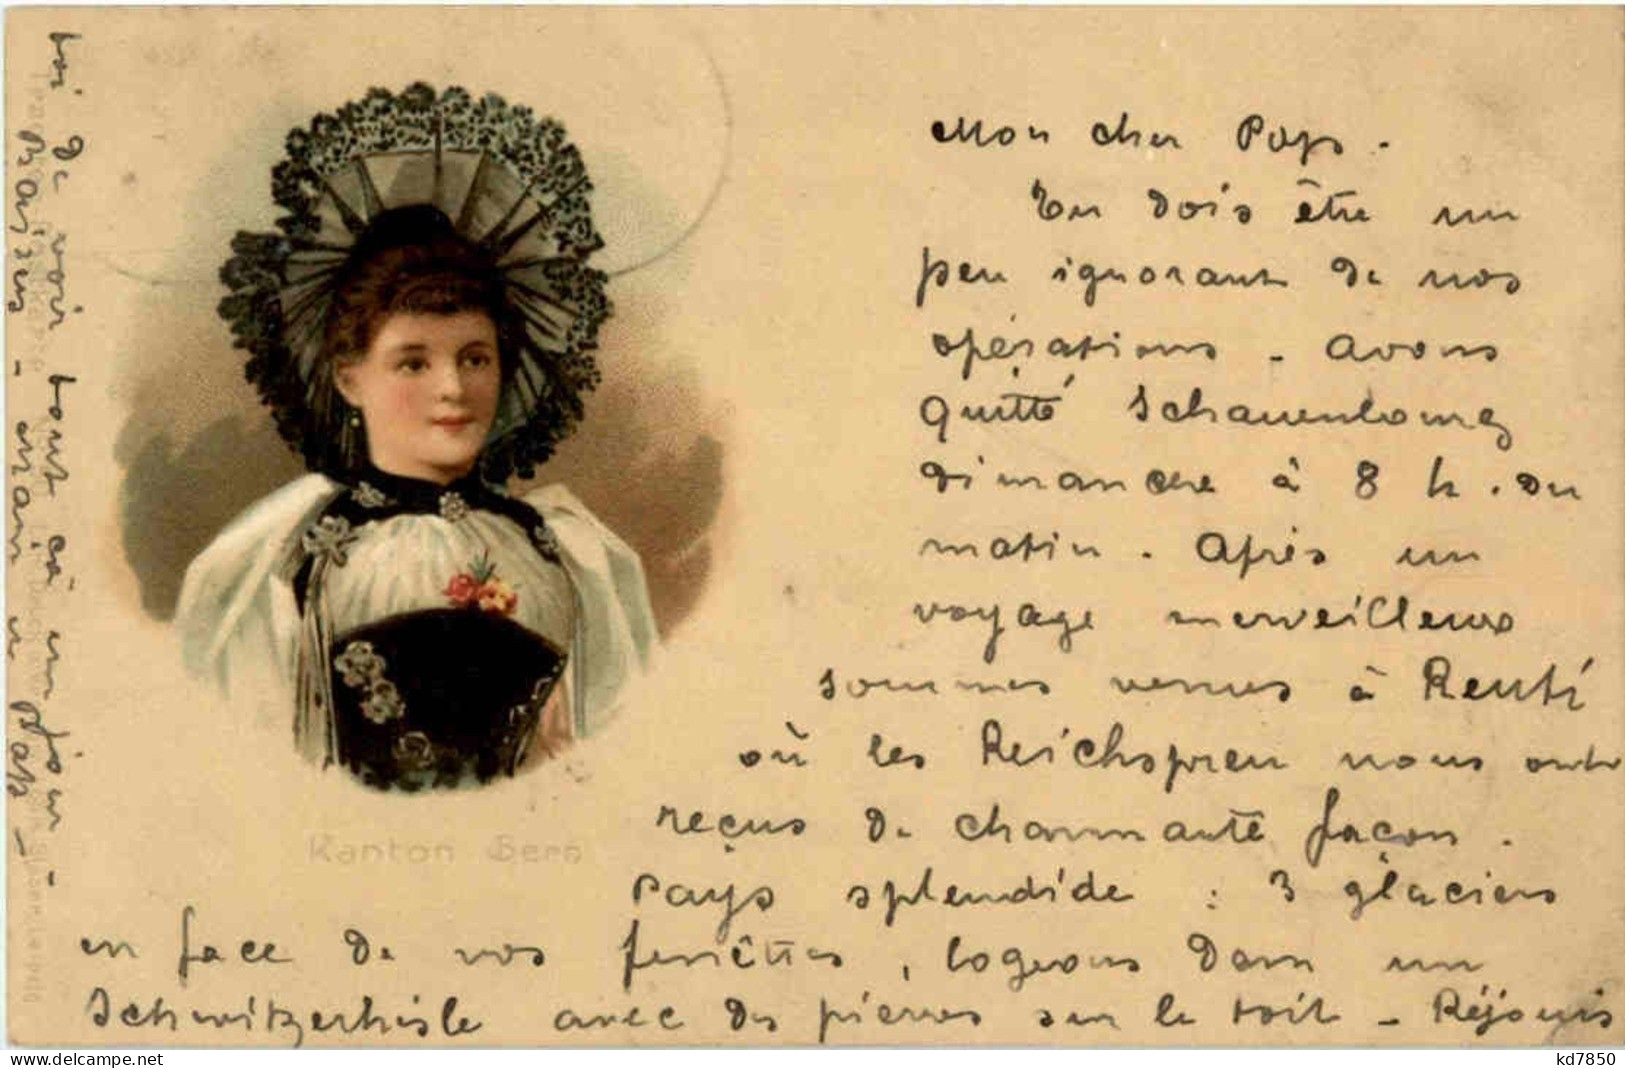 Mon cher Paps.
Tu dois être un
peu ignorant de nos
opérations - Avons
quitté Schauenbourg
dimanche à 8 h. du
matin. Après un
voyage merveilleux
sommes venus à Reuti
où les Reichs nous ont
reçus de charmante façon.
Pays splendide : 3 glaciers
en face de nos fenêtres, logeons dans un
Schwitzerhisle avec des pierres sur le toit - Réjouis
toi de voir tout ça un jour -
Baisers - 
Paps -
Kanton Bern
kd7850